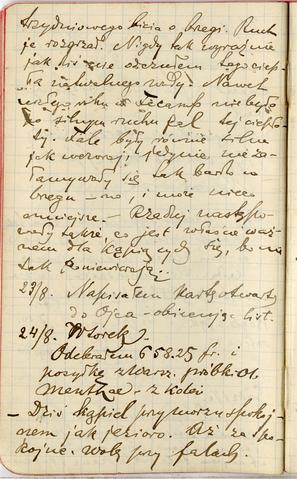 trzydniowego bicia o brzegi. Ruch
je rozgrzał. Nigdy tak wyraźnie
jak dziś nie odczułem tego ciep-
ła naturalnego wody. Nawet
w Fécamp nie było
po silnym ruchu fal tej ciepło-
ty. Fale były równie silne
jak wczoraj, jedynie nie za-
łamywały się tak bardzo na
brzegu – no, i może nieco
mniejsze. – Rzadziej następo-
wały także, co jest właśnie waż-
nem dla kąpiących się, bo nie
tak poniewierają.
23/8. Napisałem kartkę otwartą
do Ojca – obiecując list.
24/8. Wtorek
Odebrałem 658.25 fr. i
posyłkę z próbk. Ol.
Menthae – z kolei
– Dziś kąpiel przy morzu spokoj-
nem jak jezioro. Aż za spo-
kojne. Wolę przy falach.